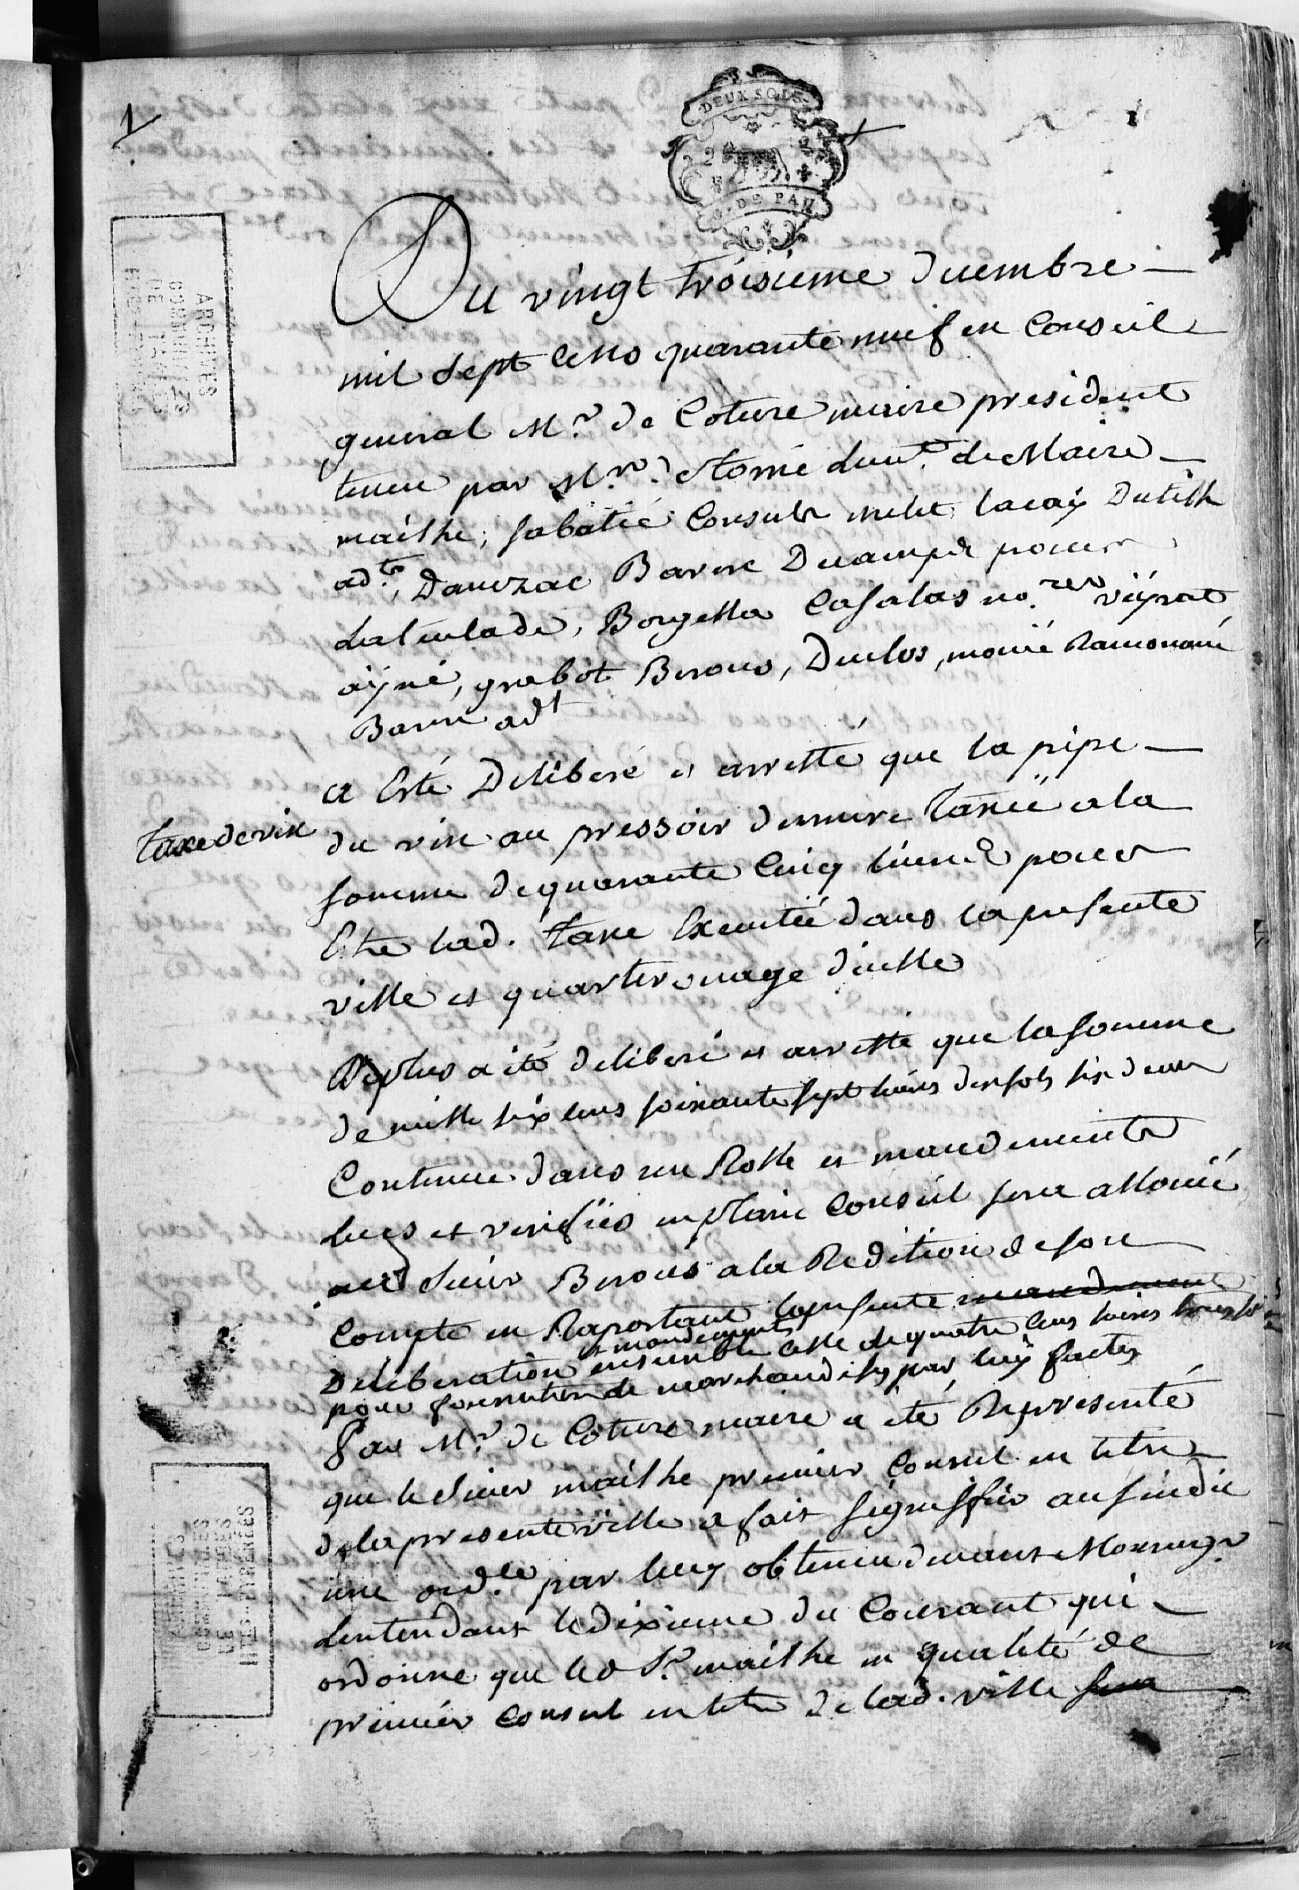 1
DEUX SOLS
G. DE PAU
ARCHIVES
COMMUNALES
DE TARBES
Du vingt troisieme decembre
mil sept cens quarante neuf en Conseil
general Mr. de Coture maire president
tenu par Mr. detorné lieut. de Maire
mailhe, sabatié Consuls lacay Dutilh
adts, Dauzac Barere Decamps pour
Latenlade, Borgella Casalas no.res veyrat
ayné, grabot Berous, Duclos, monié
Barere adt
taxe de vin
a Esté Deliberé et arresté que la pipe
du vin au pressoir demure taxée a la
somme de quarante Cinq livres pour
Etre lad. taxe Executée dans la presente
ville et quarteronage dicelle
Deplus a été deliberé et arresté que la somme
de mille six cens soixante sept livres dix sols six den
Contenue dans un Rolle et mandements
lues et verifiés en plain Conseil sera allouée
aud sieur Berous a la Redition de son
Compte en Raportant la presente mandement
Deliberation et mandements ensemble celle de quatre cens livres
pour fourniture de marchandises par luy faites
Par Mr. de Coture maire a été Representé
que le sieur mailhe premier Consul en titre
de la presente ville a fait signiffier au sindic
une ord.ce par luy obtenue devant Monseigr
Lintendant le dixieme du Courant qui
ordonne que led Sr. mailhe en qualité de
premier Consul en titre de lad. ville sera